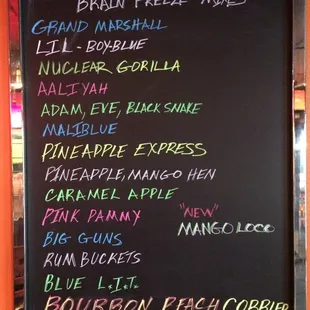 BRAIN FREEZE MIXES
GRAND MARSHALL
LIL-BOY-BLUE
NUCLEAR GORILLA
AALIYAH
ADAM, EVE, BLACK SNAKE
MALIBLUE
PINEAPPLE EXPRESS
PINEAPPLE, MANGO HEN
CARAMEL APPLE
PINK PAMMY
"NEW"
MANGO LOCO
BIG GUNS
RUM BUCKETS
BLUE L.I.T.
BOURBON PEACH COBBLER